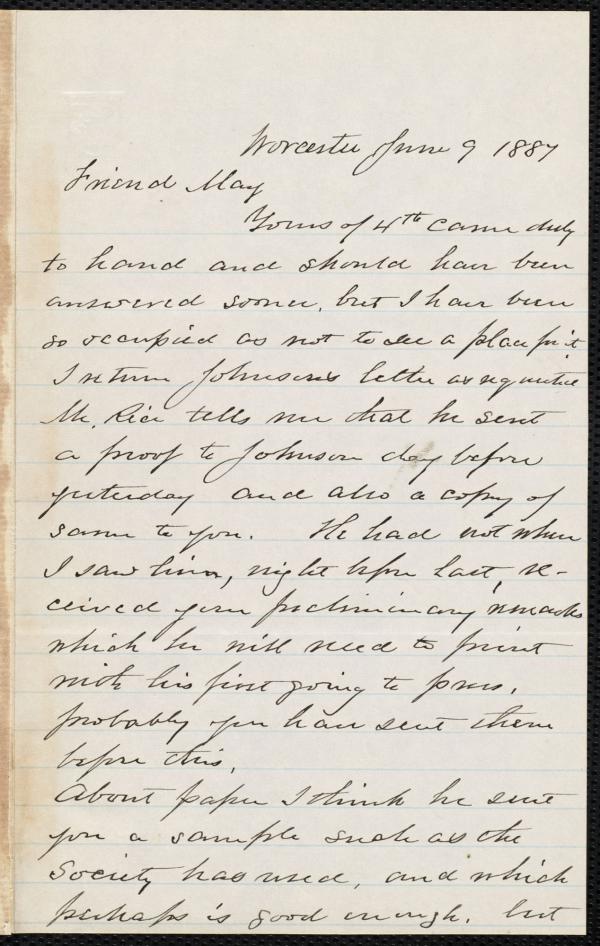 Worcester June 9 1887
Friend May
Yours of 4th came duly
to hand and should have been
answered sooner, but I have been
so occupied as not to see a place for it.
I return Johnson's letter as requested
Mr. Rice tells me that he sent
a proof to Johnson day before
yesterday and also a copy of
same to you. He had not when
I saw him, night before last, re-
ceived your preliminary remarks
which he will need to print
with his first going to press,
probably you have sent them
before this.
About paper I think he sent
you a sample such as the
Society has used, and which
perhaps is good enough, but